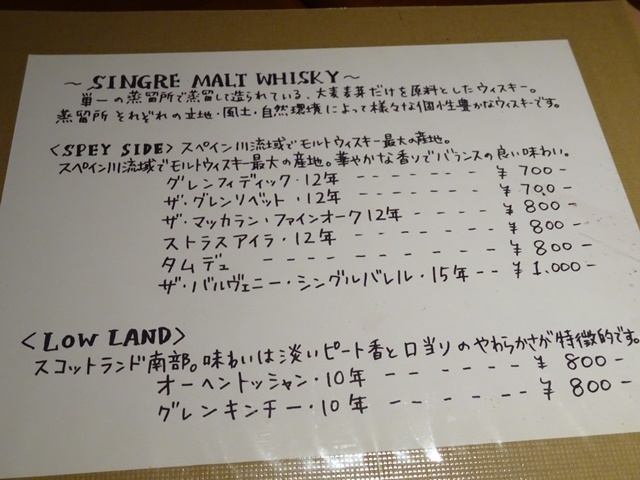 〜 SINGRE MALT WHISKY〜
単一の蒸留所で蒸留して造られている、大麦麦芽だけを原料としたウィスキー。
蒸留所 それぞれの立地・風土・自然環境によって様々な個性豊かなウィスキーです。
<SPEY SIDE> スペイン川流域でモルトウィスキー最大の産地。
スペイン川流域でモルトウィスキー最大の産地。華やかな香りでバランスの良い味わい。
グレンフィディック・12年 ------- ¥ 700-
ザ・グレンリベット・12年 ------- ¥ 700-
ザ・マッカラン・ファインオーク12年 ----- ¥ 800-
ストラスアイラ・12年 ------- ¥ 800-
タムデュ ---------- ¥ 800-
ザ・バルヴェニー・シングルバレル・15年-- ¥ 1.000-
<LOW LAND>
スコットランド南部。味わいは淡いピート香と口当りのやわらかさが特徴的です。
オーヘントッシャン・10年 ------- ¥ 800-
グレンキンチー・10年 ------- ¥ 800-